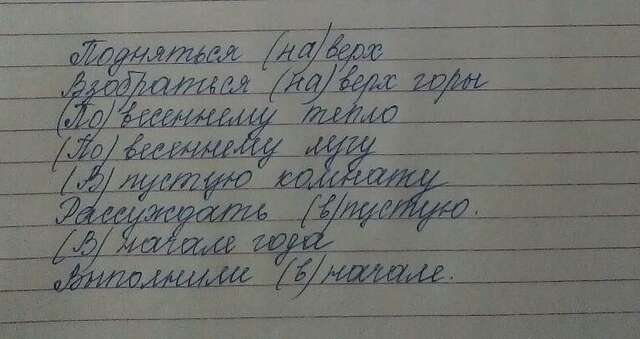 Подняться (на) верх
Взобраться (на) верх горы
(По) весеннему тепло
(По) весеннему лугу
(В) пустую комнату
Рассуждать (в) пустую.
(В) начале года
Выполнили (в) начале.